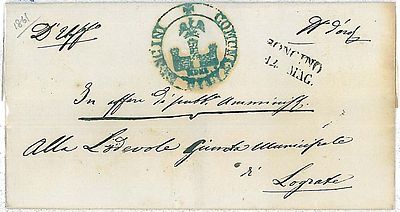 1861
D'Uff°
COMUNE
SONCINO
14 MAG.
In affari di pubb. Amminist.
Alla Lodevole Giunta Municipale
di
Lograto